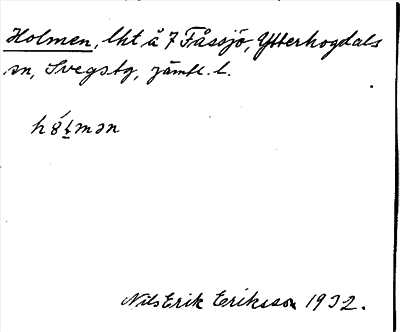 Holmen, lht å 7 Fåssjö, Ytterhogdals
sn, Svegs tg, Jämtl. l.
hó̤ɫmən
Nils Erik Eriksson 1932.